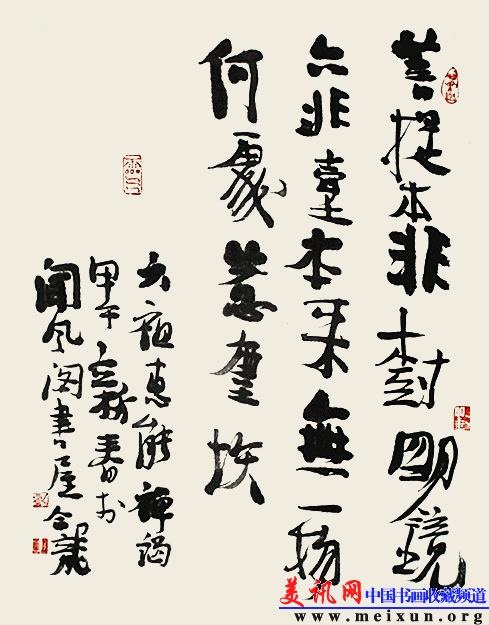 菩提本非樹明鏡
亦非臺本来無一物
何處惹塵埃
六祖惠能禅偈
甲午春於
聞风阁書屋
美讯网 中国书画收藏频道
www.meixun.org